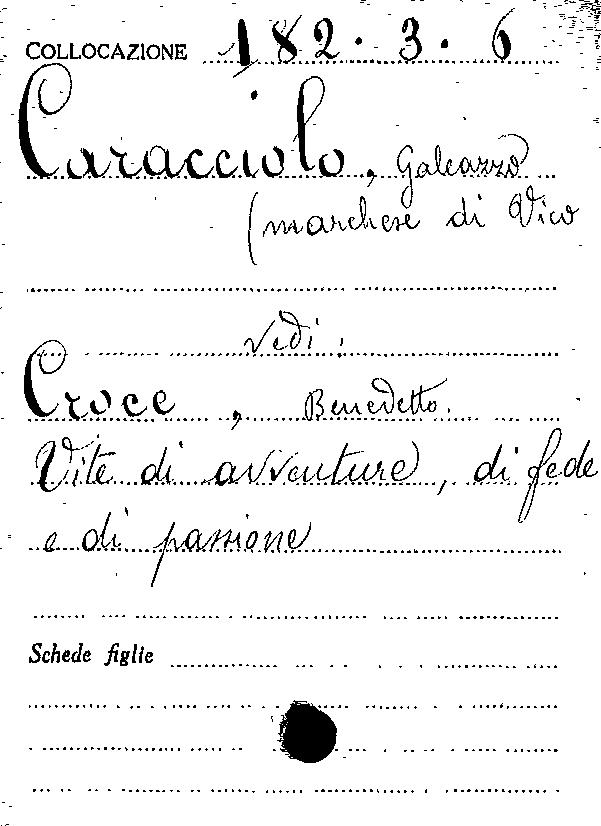 COLLOCAZIONE 182.3.6
Caracciolo, Galeazzo
(marchese di Vico
Vedi:
Croce, Benedetto.
Vite di avventure, di fede
e di passione
Schede figlie